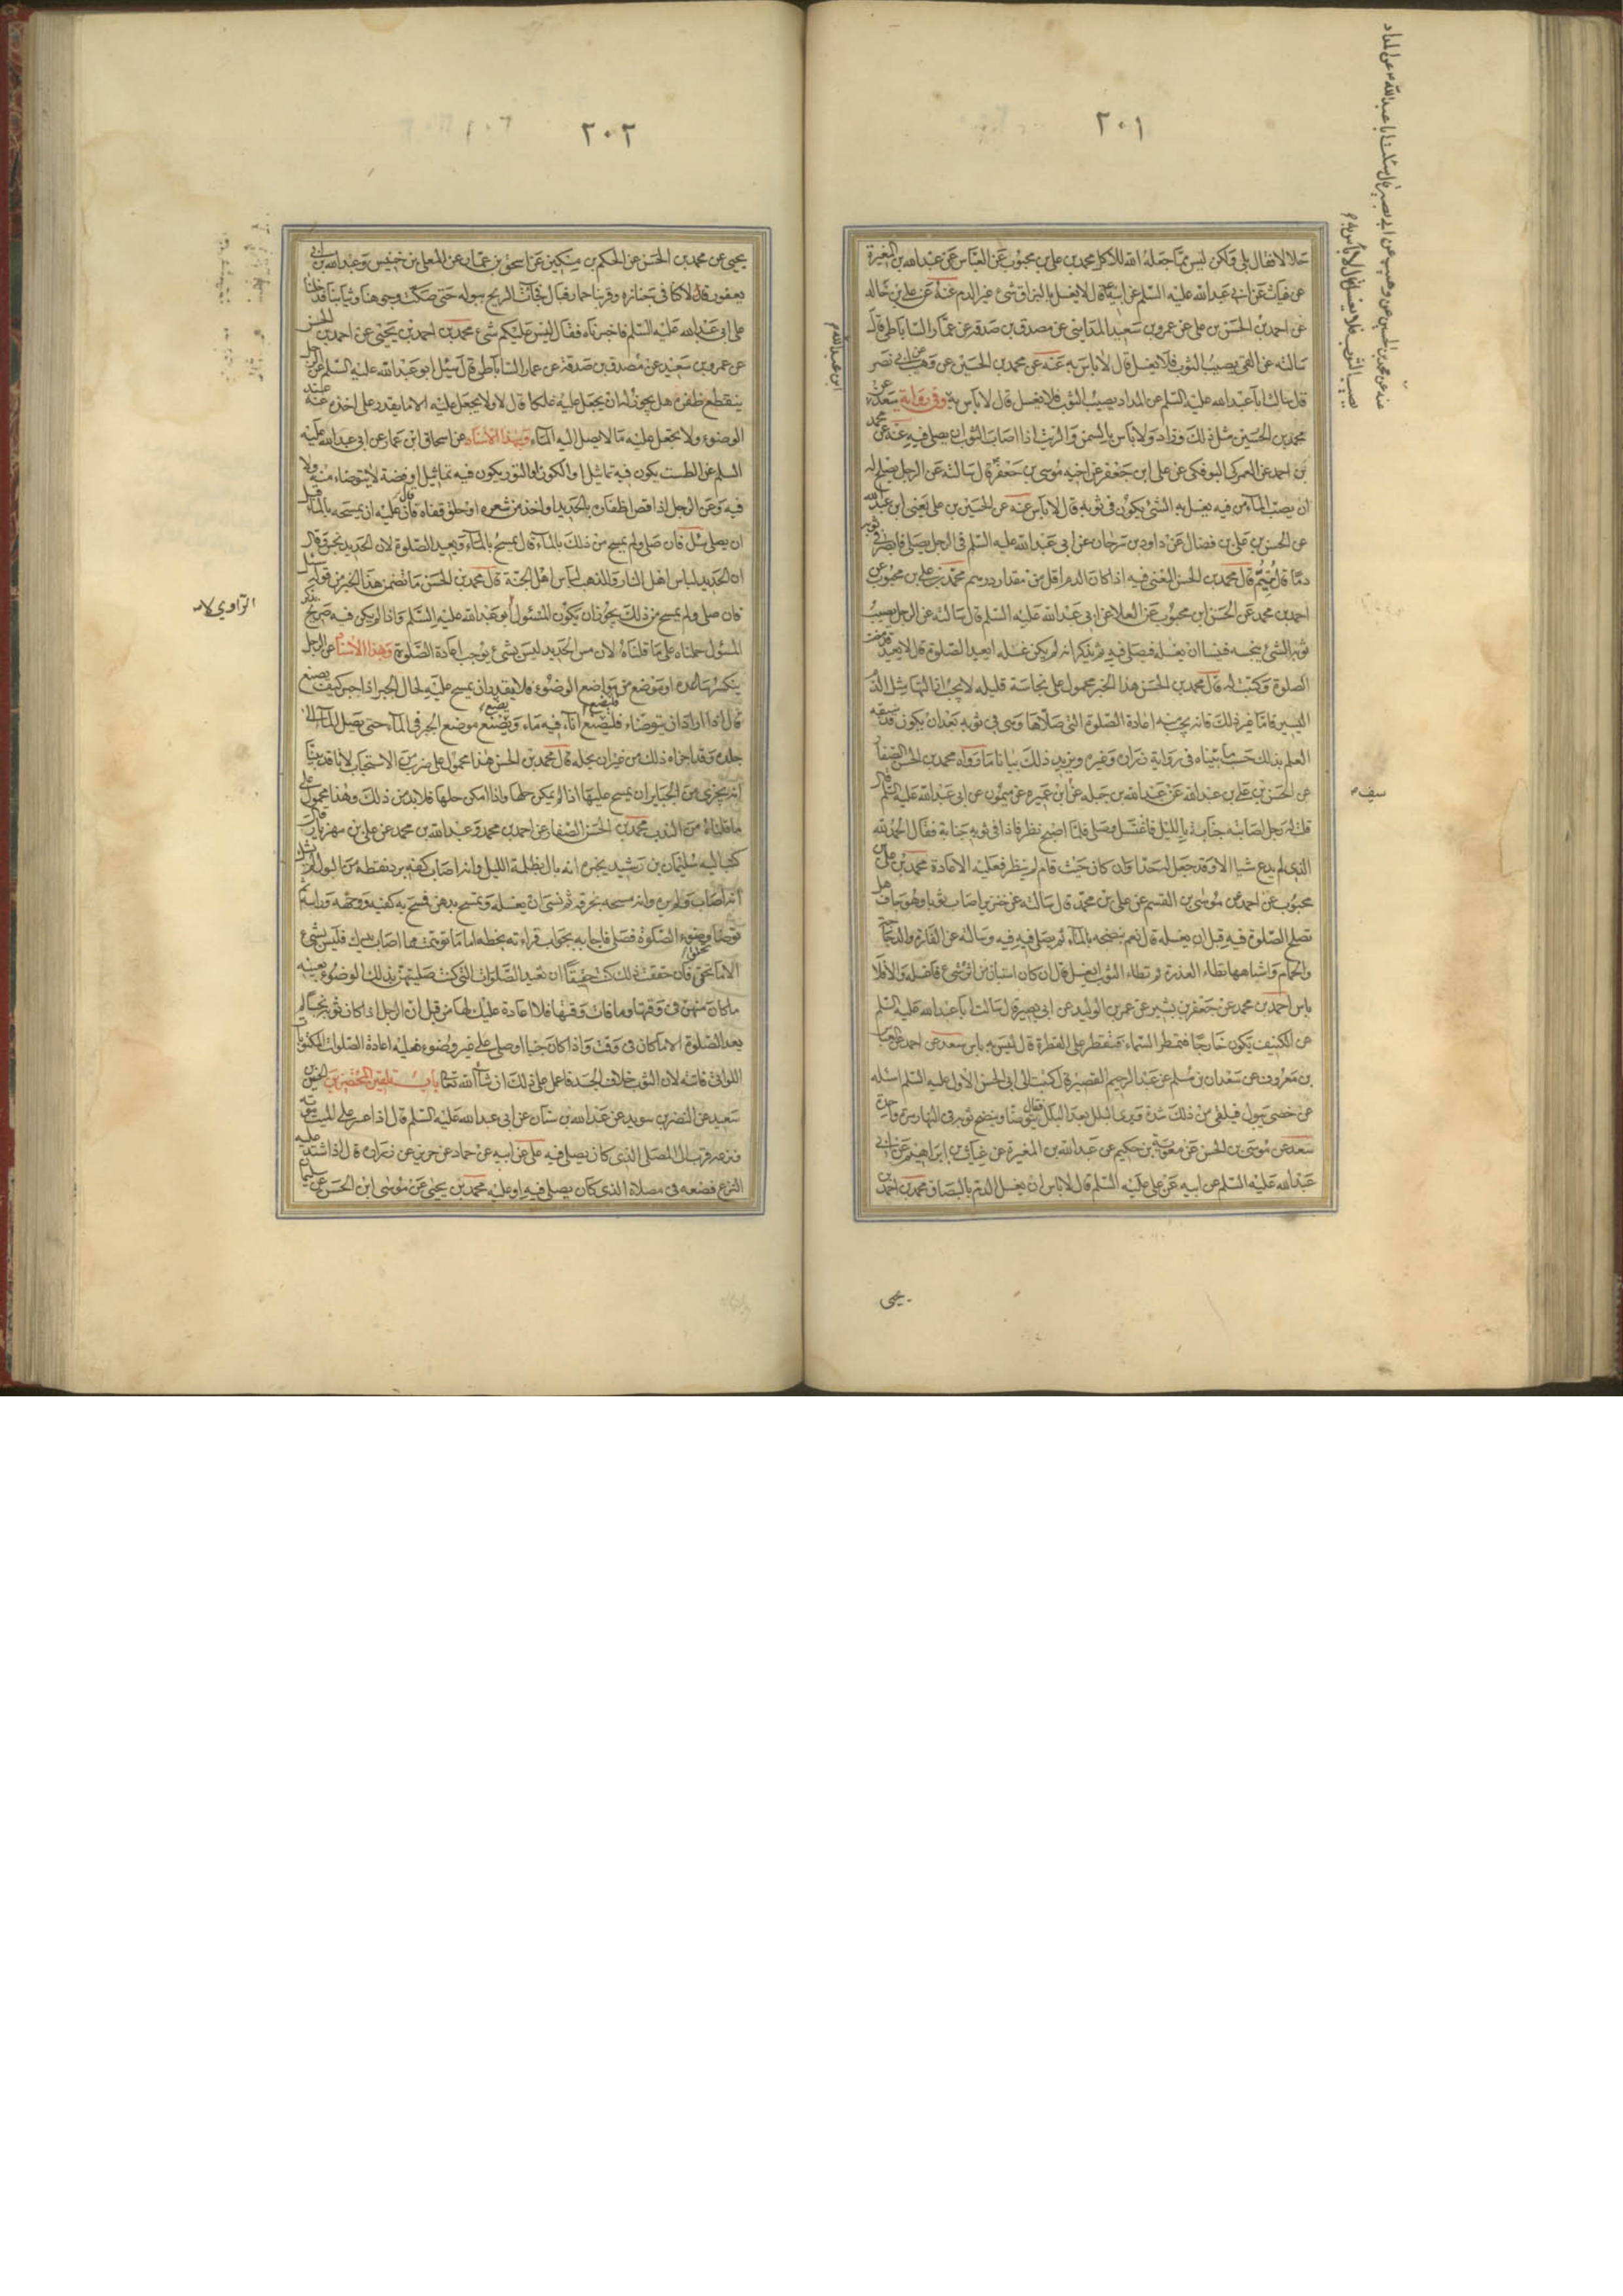 ٢٠١
حلالا فقال بلى ولكن ليس مما جعله الله للاكل محمد بن علي بن محبوب عن العباس عن عبد الله بن المغيرة
عن غياث عن ابي عبد الله عليه السلم عن ابيه قال لا يغسل بالبزاق شئ غير الدم عنه عن علي بن خالد
عن احمد بن الحسن بن علي عن عمرو بن سعيد المدايني عن مصدق بن صدقه عن عمار الساباطي قال
سالته عن القئ يصيب الثوب فلا يغسل قال لا باس به عنه عن محمد بن الحسين عن وهيب عن ابي نصر
قال سالت ابا عبد الله عليه السلم عن المداد يصيب الثوب فلا يغسل قال لا باس به وفي رواية سعد عن
محمد بن الحسين مثل ذلك وزاد ولا باس بالسمن والزيت اذا اصاب الثوب ان يصلى فيه عنه عن محمد
بن احمد عن العمركي البوفكي عن علي ابن جعفر عن اخيه موسى بن جعفر قال سالته عن الرجل يصلح له
ان يصب الماء من فيه يغسل به الشئ يكون في ثوبه قال لا باس عنه عن الحسين بن علي يعني ابن عبد الله
عن الحسن بن علي بن فضال عن داود بن سرحان عن ابي عبد الله عليه السلم في الرجل يصلي فابصر في ثوبه
دما قال يتم قال محمد بن الحسن المعنى فيه اذا كان الدم اقل من مقدار درهم محمد بن علي بن محبوب عن
احمد بن محمد عن الحسن ابن محبوب عن العلا عن ابي عبد الله عليه السلم قال سالته عن الرجل يصيب
ثوبه الشئ ينجسه فينسا ان يغسله فيصلي فيه ثم يذكر انه لم يكن غسله ايعيد الصلوة قال لا يعيد قد مضت
الصلوة وكتبت له قال محمد بن الحسن هذا الخبر محمول على نجاسة قليله لا يجب ازالتها مثل الدم
اليسير فاما غير ذلك فانه يجب منه اعادة الصلوة التي صلاها ونسى في ثوبه بعد ان يكون قد سبقه
العلم بذلك حسب ما بيناه في رواية زراره وغيره ويزيد ذلك بيانا ما رواه محمد بن الحسن الصفار
عن الحسن بن علي بن عبد الله عن عبد الله بن جبله عن ابن عميره عن ميمون عن ابي عبد الله عليه السلم قال
قلت له رجل اصابته جنابة بالليل فاغتسل وصلى فلما اصبح نظر فاذا في ثوبه جنابة فقال الحمد لله
الذي لم يدع شيا الا وقد جعل له حدا ان كان حيث قام لم ينظر فعليه الاعادة محمد بن علي بن
محبوب عن احمد عن موسى بن القسم عن علي بن محمد قال سالته عن خنزير اصاب ثوبا وهو جاف هل
تصلح الصلوة فيه قبل ان يغسله قال نعم ينضحه بالماء ثم يصلي فيه وسالته عن الفارة والدجاجة
والحمام واشباهها تطاء العذرة ثم تطاء الثوب ايغسل قال ان كان استبان من اثره شئ فاغسله والا فلا
باس احمد بن محمد عن جعفر بن بشير عن عمر بن الوليد عن ابي بصير قال سالت ابا عبد الله عليه السلم
عن الكنيف يكون خارجا فتمطر السماء فتقطر على القطرة قال ليس به باس سعد عن احمد عن العباس
بن معروف عن سعدان بن مسلم عن عبد الرحيم القصير قال كتبت الى ابي الحسن الاول عليه السلم اسئله
عن خصي يبول فيلقى من ذلك شدة ويرى البلل بعد البلل فقال يتوضا وينضح ثوبه في النهار مرة واحدة
سعد عن موسى بن الحسن عن معوية بن حكيم عن عبد الله بن المغيرة عن غياث بن ابراهيم عن ابي
عبد الله عليه السلم عن ابيه عن علي عليه السلم قال لا باس ان يغسل الدم بالبصاق محمد بن احمد بن
يحيى
عنه عن محمد بن الحسين عن وهيب عن ابي بصير قال سئلت ابا عبد الله ع عن المداد
يصيب الثوب فلا يغسل قال لا باس به م
ابي عبد الله م
سيف م
٢٠٢
يحيى عن محمد بن الحسن عن الحكم بن مسكين عن اسحق بن عمار عن المعلى بن خنيس وعبد الله بن ابي
يعفور قالا كنا في جنازه وقربنا حمار فبال فجاءت الريح ببوله حتى صكت وجوهنا وثيابنا فدخلنا
على ابي عبد الله عليه السلم فاخبرناه فقال ليس عليكم شئ محمد بن احمد بن يحيى عن احمد بن الحسن
عن عمرو بن سعيد عن مصدق بن صدقة عن عمار الساباطي قال سئل ابو عبد الله عليه السلم عن الرجل
ينقطع ظفره هل يجوز له ان يجعل عليه علكا قال لا ولا يجعل عليه الا ما يقدر على اخذه عنه عند
الوضوء ولا يجعل عليه ما لا يصل اليه الماء وبهذا الاسناد عن اسحاق ابن عمار عن ابي عبد الله عليه
السلم عن الطست يكون فيه تماثيل او الكوز او التور يكون فيه تماثيل او فضة لا يتوضاء منه ولا
فيه وعن الرجل اذا قص اظفاره بالحديد او اخذ من شعره او حلق قفاه قال فان عليه ان يمسحه بالماء قبل
ان يصلي سئل فان صلى ولم يمسح من ذلك بالماء قال يمسح بالماء ويعيد الصلوة لان الحديد نجس وقال
ان الحديد لباس اهل النار والذهب لباس اهل الجنة قال محمد بن الحسن ما تضمن هذا الخبر من قوله سئل
فان صلى ولم يمسح من ذلك يجوز ان يكون المسئول ابو عبد الله عليه السلم واذا لم يكن فيه صريح بذكر
المسئول حملناه على ما قلناه لان مس الحديد ليس بشئ يوجب اعادة الصلوة وبهذا الاسناد عن الرجل
ينكسر ساعده او موضع من مواضع الوضوء فلا يقدر ان يمسح عليه لحال الجبر اذا جبر كيف يصنع
قال اذا اراد ان يتوضاء فليضع اناء فيه ماء ويضع موضع الجبر في الماء حتى يصل الماء الى
جلده وقد اجزاه ذلك من غير ان يحله قال محمد بن الحسن هذا محمول على ضرب من الاستحباب لانا قد بينا
انه يجزي من الجباير ان يمسح عليها اذا لم يمكن حلها واذا امكن حلها فلا بد من ذلك وهذا محمول على
ما قلناه من الندب محمد بن الحسن الصفار عن احمد بن محمد وعبد الله بن محمد عن علي بن مهزيار قال
كتب اليه سليمان بن رشيد يخبره انه بال في ظلمة الليل وانه اصاب كفه برد نقطة من البول لم يشك
انه اصابه ولم يره وانه مسحه بخرقه ثم نسى ان يغسله وتمسح بدهن فمسح به كفيه ووجهه وراسه ثم
توضا وضوء الصلوة فصلى فاجابه بجواب قراءته بخطه اما ما توهمت مما اصاب يدك فليس بشئ
الا ما تحقق فان حققت ذلك كنت حقيقا ان تعيد الصلوات التي كنت صليتهن بذلك الوضوء بعينه
ما كان منهن في وقتها وما فات وقتها فلا اعادة عليك لها من قبل ان الرجل اذا كان ثوبه نجسا لم
يعد الصلوة الا ما كان في وقت واذا كان جنبا او صلى على غير وضوء فعليه اعادة الصلوات المكتوبات
اللواتي فاتته لان الثوب خلاف الجسد فاعمل على ذلك ان شاء الله تعالى باب تلقين المحتضرين الحسين بن
سعيد عن النضر بن سويد عن عبد الله بن سنان عن ابي عبد الله عليه السلم قال اذا عسر على الميت موته
ونزعه قرب الى المصلى الذي كان يصلي فيه علي عن ابيه عن حماد عن حريز عن زراره قال اذا اشتد عليه
النزع فضعه في مصلاه الذي كان يصلي فيه او عليه محمد بن يحيى عن موسى ابن الحسن عن سليمان
الراوي لانه